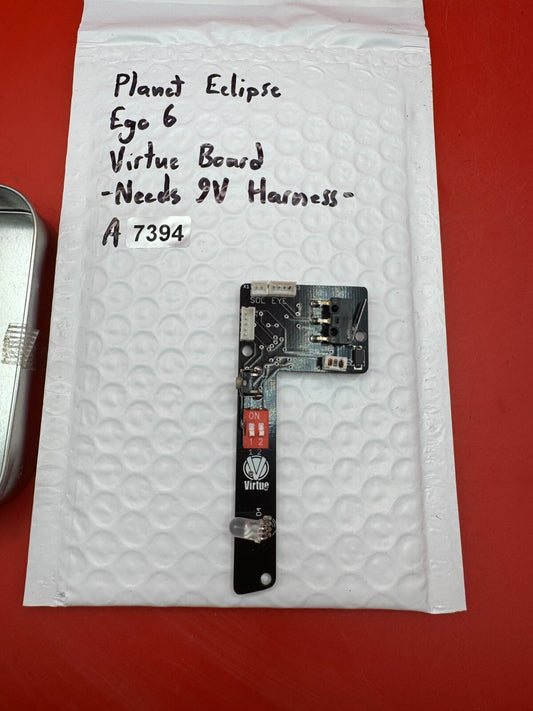 Planet Eclipse
Ego 6
Virtue Board
-Needs 9V Harness-
A 7394
SOL EYE
ON
1 2
1 2
Virtue
D4